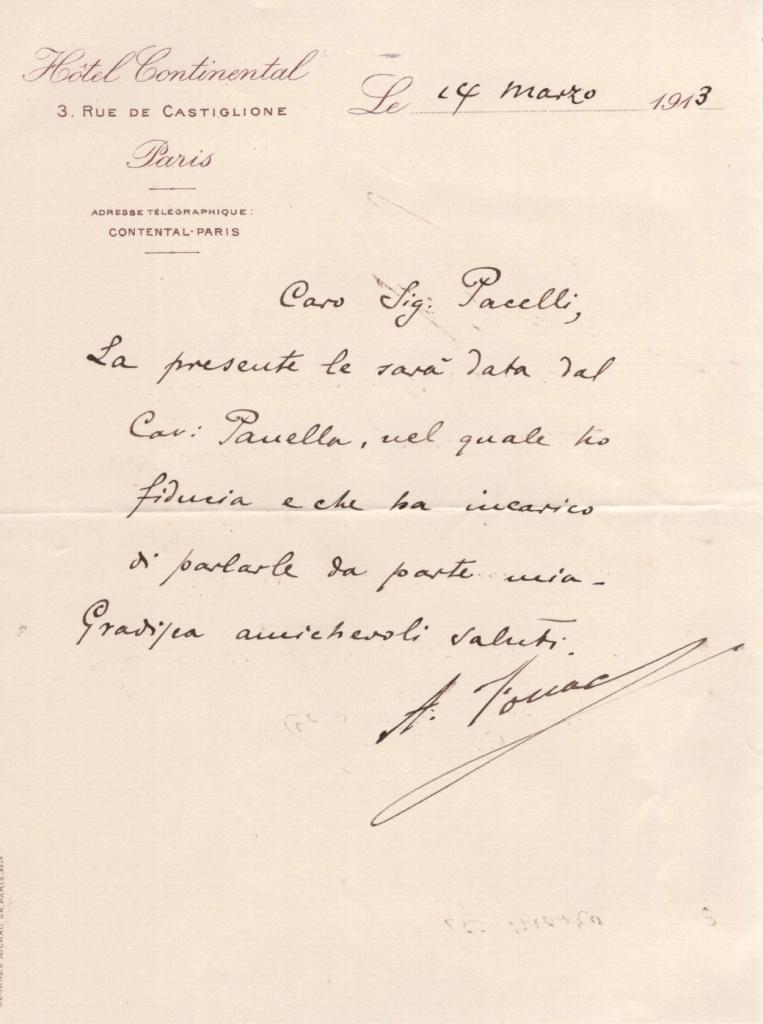 Hôtel Continental
3. RUE DE CASTIGLIONE
Paris
ADRESSE TÉLÉGRAPHIQUE:
CONTENTAL-PARIS
Le 14 marzo 1913
Caro Sig. Pacelli,
La presente le sarà data dal
Cav: Panella, nel quale ho
fiducia e che ha incarico
di parlarle da parte mia -
Gradisca amichevoli saluti.
A.